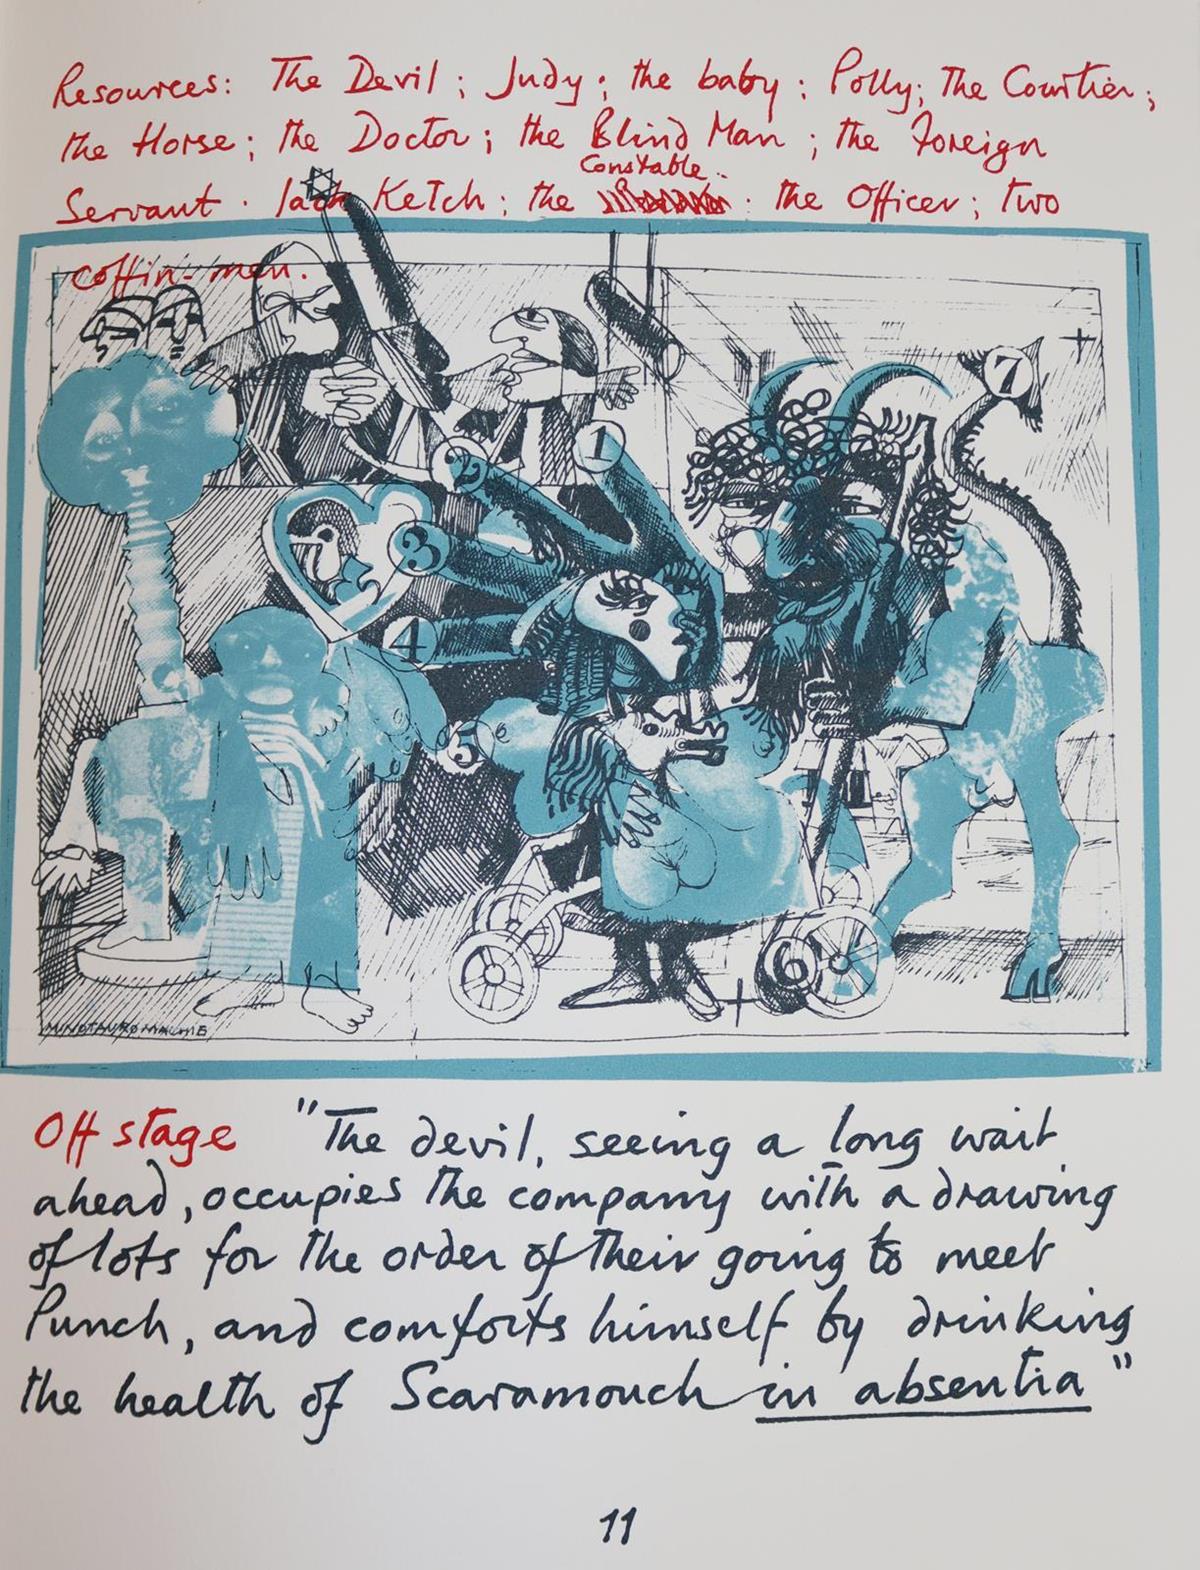 Resources: The Devil; Judy; the baby; Polly; The Courtier;
the Horse; the Doctor; the Blind Man; the Foreign
Constable
Servant. Jack Ketch; the the Officer; Two
coffin-men.
7
1
2
3
4
5
6
MINOTAUROMACHIE
Off stage "The devil, seeing a long wait
ahead, occupies the company with a drawing
of lots for the order of their going to meet
Punch, and comforts himself by drinking
the health of Scaramouch in absentia"
11